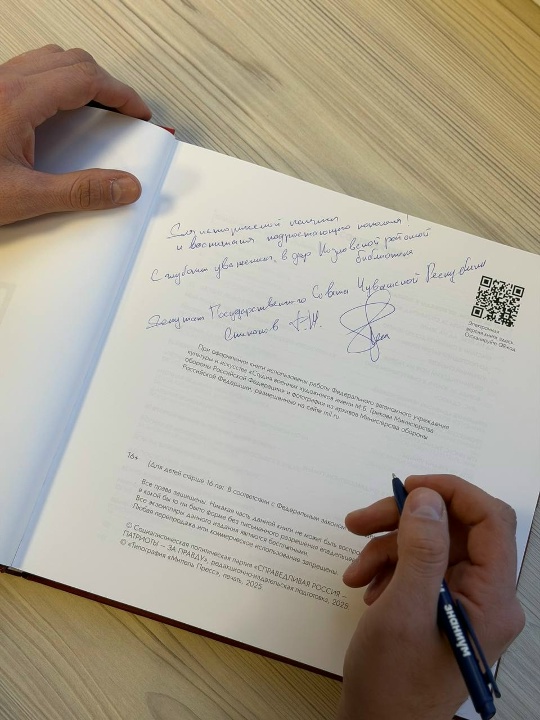 Для исторической памяти
и воспитания подростающего поколения!
С глубоким уважением, в дар Козловской районной
библиотеке
Депутат Государственного Совета Чувашской Республики
Степанов
Электронная
версия книги здесь.
Отсканируйте QR-код
При оформлении книги использованы работы Федерального автономного учреждения
культуры и искусства «Студия военных художников имени М.Б. Грекова Министерства
обороны Российской Федерации» и фотографии из архивов Министерства обороны
Российской Федерации, размещенные на сайте mil.ru.
16+ (Для детей старше 16 лет. В соответствии с Федеральным законом
Все права защищены. Никакая часть данной книги не может быть воспро
в какой бы то ни было форме без письменного разрешения владельцев
Все экземпляры данного издания являются бесплатными.
Любая перепродажа или коммерческое использование запрещены.
© Социалистическая политическая партия «СПРАВЕДЛИВАЯ РОССИЯ –
ПАТРИОТЫ – ЗА ПРАВДУ», редакционно-издательская подготовка, 2025
© «Типография «Митель Пресс», печать, 2025